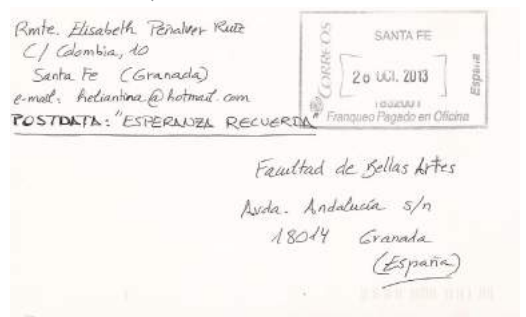 Rmte. Elisabeth Peñalver Ruiz
C/ Colombia, 10
Santa Fe (Granada)
e-mail: heliantina@hotmail.com
POSTDATA: "ESPERANZA RECUERDA"
CORREOS
SANTA FE
26 OCT. 2013
España
Franqueo Pagado en Oficina
Facultad de Bellas Artes
Avda. Andalucía s/n
18014 Granada
(España)